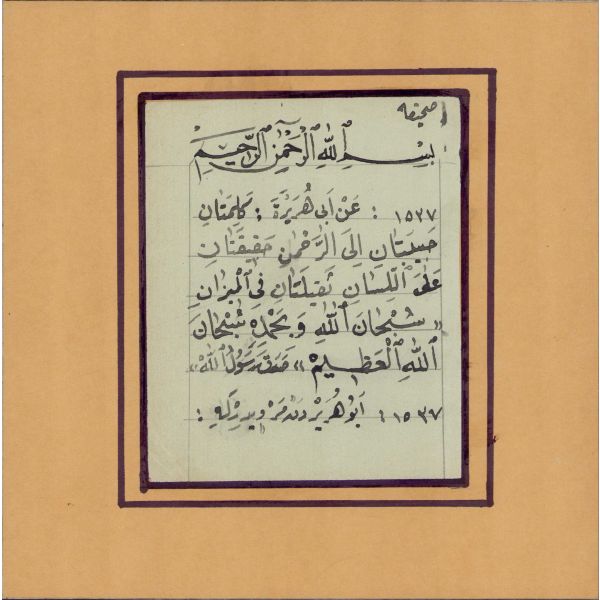 صحيفه ١
بِسْمِ ٱللّٰهِ ٱلرَّحْمٰنِ ٱلرَّحِيمِ
١٥٣٧ : عَنْ اَبِى هُرَيْرَةَ : كَلِمَتَانِ
حَبِيبَتَانِ اِلَى الرَّحْمٰنِ خَفِيفَتَانِ
عَلَى ٱللِّسَانِ ثَقِيلَتَانِ فِى ٱلْمِيزَانِ
«سُبْحَانَ ٱللّٰهِ وَ بِحَمْدِهِ سُبْحَانَ
ٱللّٰهِ ٱلْعَظِيمِ» صَدَقَ رَسُولُ ٱللّٰهْ»
١٥٣٧ : اَبُو هُرَيْرَه‌دَنْ مَرْوِيدِرْكِه :